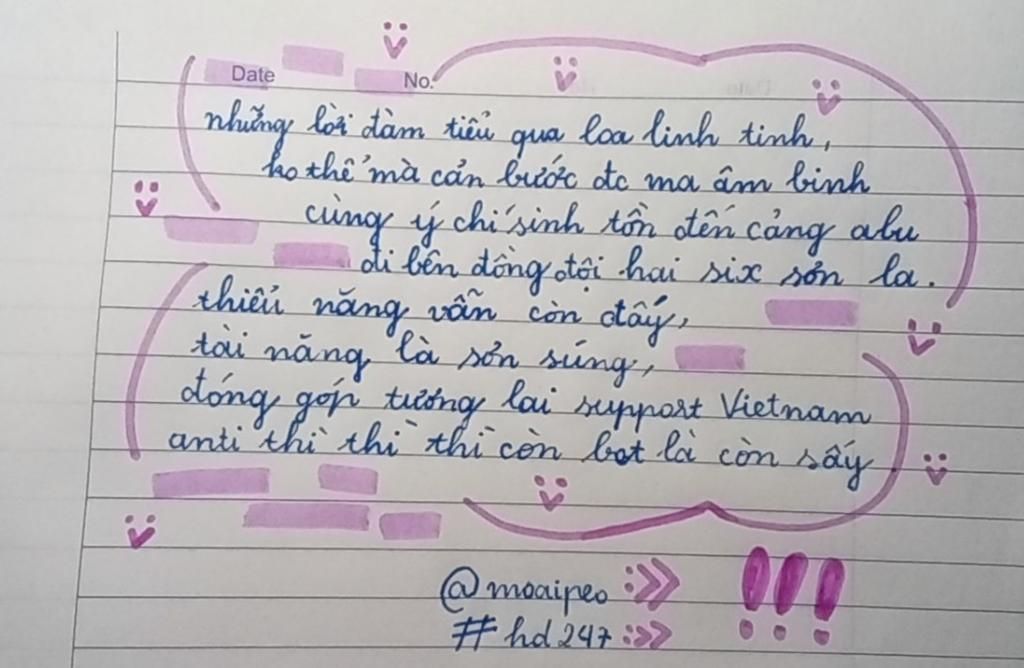 Date No.
những lời đàm tiếu qua loa linh tinh,
ko thể mà cản bước đc ma âm binh
cùng ý chí sinh tồn đến cảng abu
đi bên đồng đội hai six sơn la.
thiểu năng vẫn còn đấy,
tài năng là sơn súng,
đóng góp tương lai support Vietnam
anti thì thì thì còn bot là còn sấy
@moaipeo :>>
!!!
#hd247 :>>